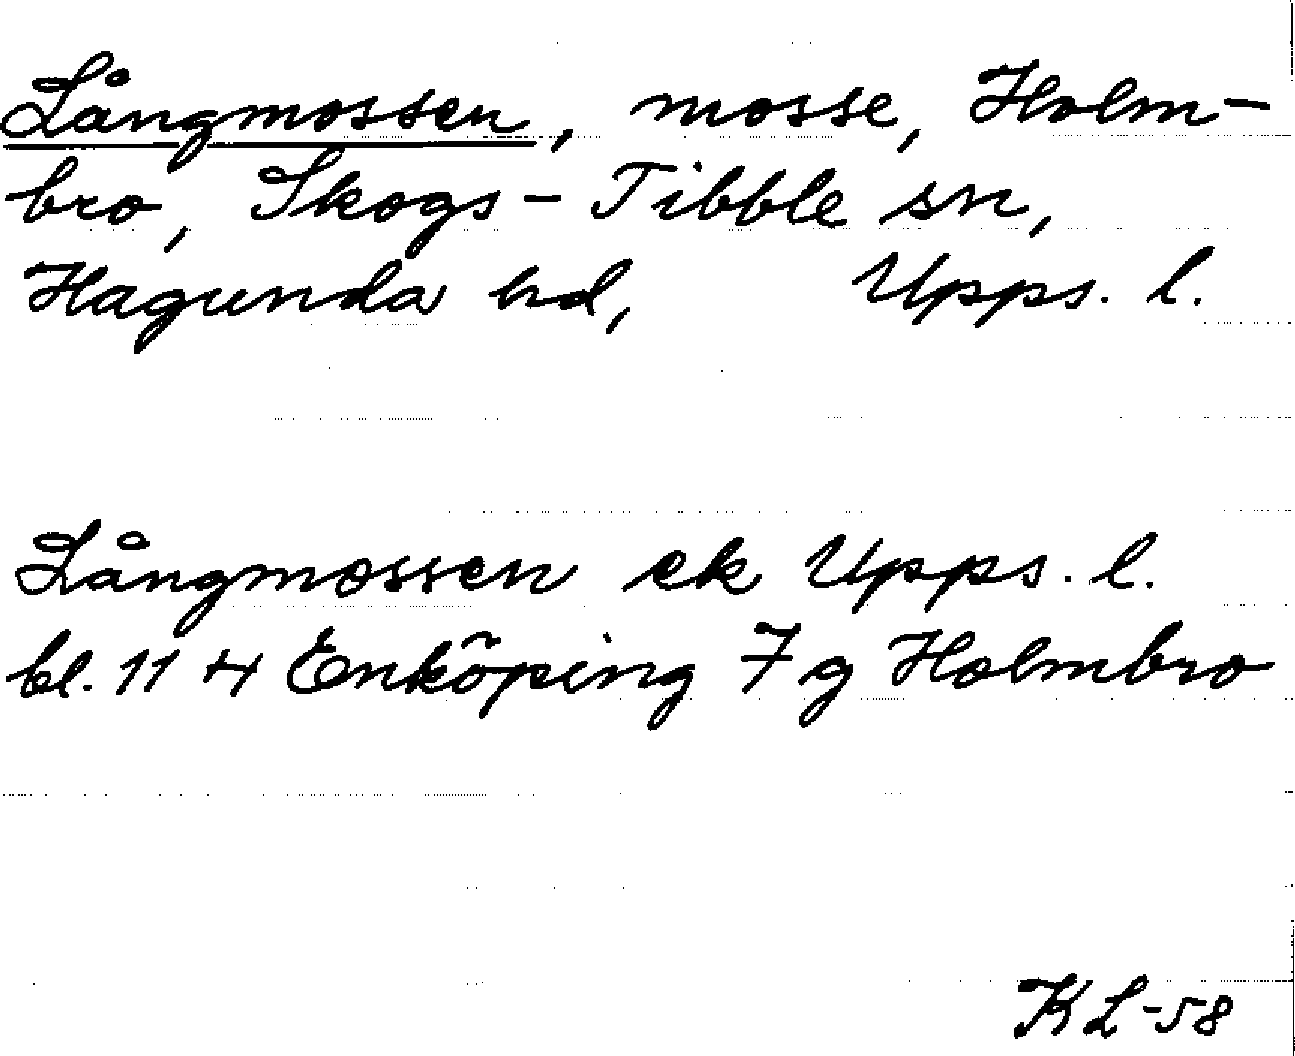 Långmossen, mosse, Holm-
bro, Skogs-Tibble sn,
Hagunda hd, Upps. l.
Långmossen ek Upps. l.
bl. 114 Enköping 7g Holmbro
KL-58